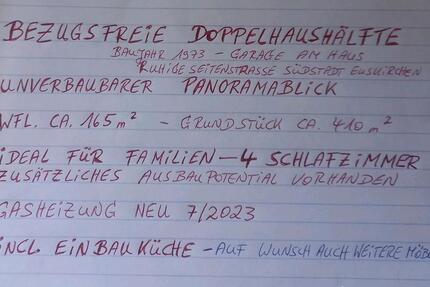 BEZUGSFREIE DOPPELHAUSHÄLFTE
BAUJAHR 1973 - GARAGE AM HAUS
RUHIGE SEITENSTRASSE SÜDSTADT EUSKIRCHEN
UNVERBAUBARER PANORAMABLICK
WFL. CA. 165 m² - GRUNDSTÜCK CA. 410 m²
IDEAL FÜR FAMILIEN - 4 SCHLAFZIMMER
ZUSÄTZLICHES AUSBAUPOTENTIAL VORHANDEN
GASHEIZUNG NEU 7/2023
INCL. EINBAUKÜCHE - AUF WUNSCH AUCH WEITERE MÖB